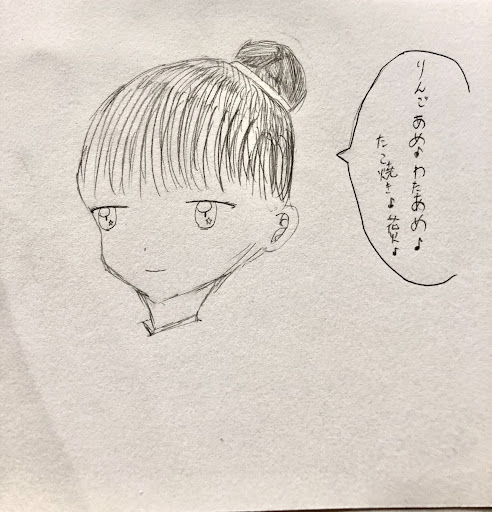 りんごあめ♪わたあめ♪
たこ焼き♪花火♪